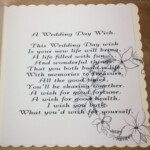 A Wedding Day Wish.
This Wedding Day wish
Is your new life will bring
A life filled with fun,
And wonderful things
That you both build
With memories to treasure,
All the good
You'll be sharing together.
A wish for good fortune,
A wish for good health,
A wish you both
What you'd wish for yourself.